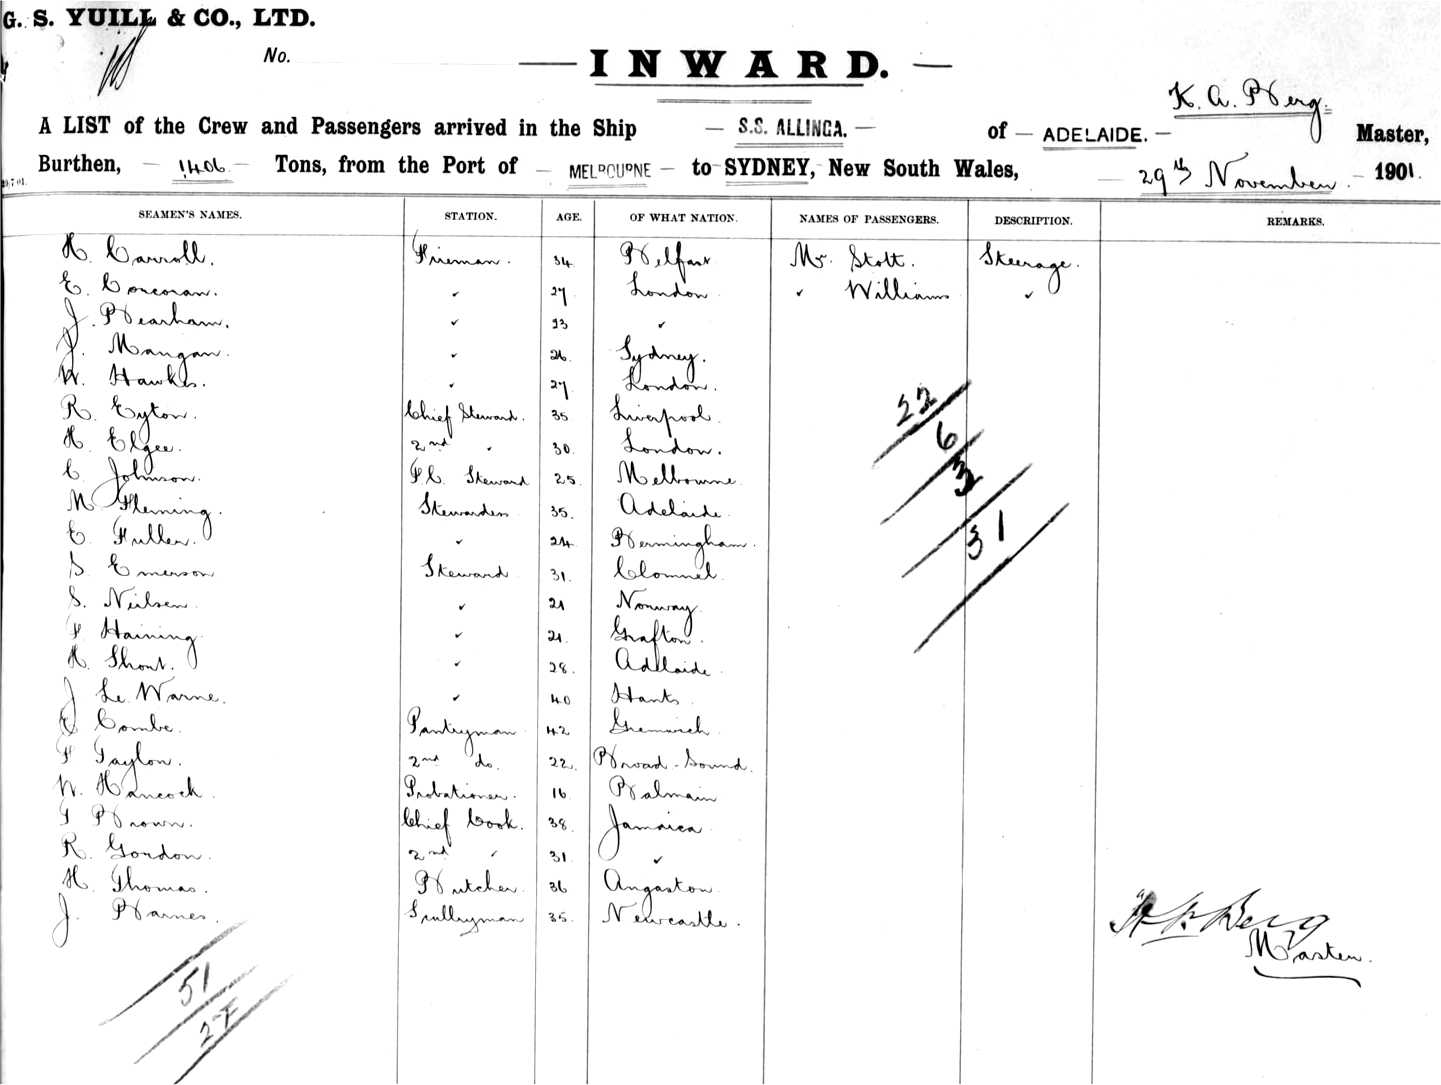 G. S. YUILL & CO., LTD.
No.
INWARD.
K. A. Berg.
A LIST of the Crew and Passengers arrived in the Ship — S.S. ALLINGA. — of — ADELAIDE. — Master,
Burthen, — 1406 — Tons, from the Port of — MELBOURNE — to SYDNEY, New South Wales, — 29th November — 1901.
SEAMEN'S NAMES. STATION. AGE. OF WHAT NATION. NAMES OF PASSENGERS. DESCRIPTION. REMARKS.
H. Carroll. Fireman. 34 Belfast Mr. Stott. Steerage.
E. Corcoran. " 27 London " Williams "
J. Bearham. " 23 "
J. Mangan. " 26 Sydney.
W. Hawkes. " 27 London.
R. Eyton. Chief Steward. 35 Liverpool
H. Elgee. 2nd " 30 London.
C Johnson. F.C. Steward 25 Melbourne
M Fleming. Stewardess 35. Adelaide
E. Fuller. " 24 Bermingham.
S. Emerson Steward 31. Clomnel.
S. Neilsen. " 21 Norway
F Haining " 21. Grafton.
H. Short. " 28. Adelaide
J Le Warne. " 40 Hants.
E Combe. Pantryman 42 Greenwich
F Taylor. 2nd do. 22. Broad-Sound.
W. Hancock. Probationer. 16 Balmain
G Brown. Chief Cook. 38. Jamaica
R. Gordon. 2nd " 31. "
H. Thomas. Butcher. 36 Angaston.
J. Barnes. Scullryman 35. Newcastle.
22
6
3
31
51
27
Berg
Master.